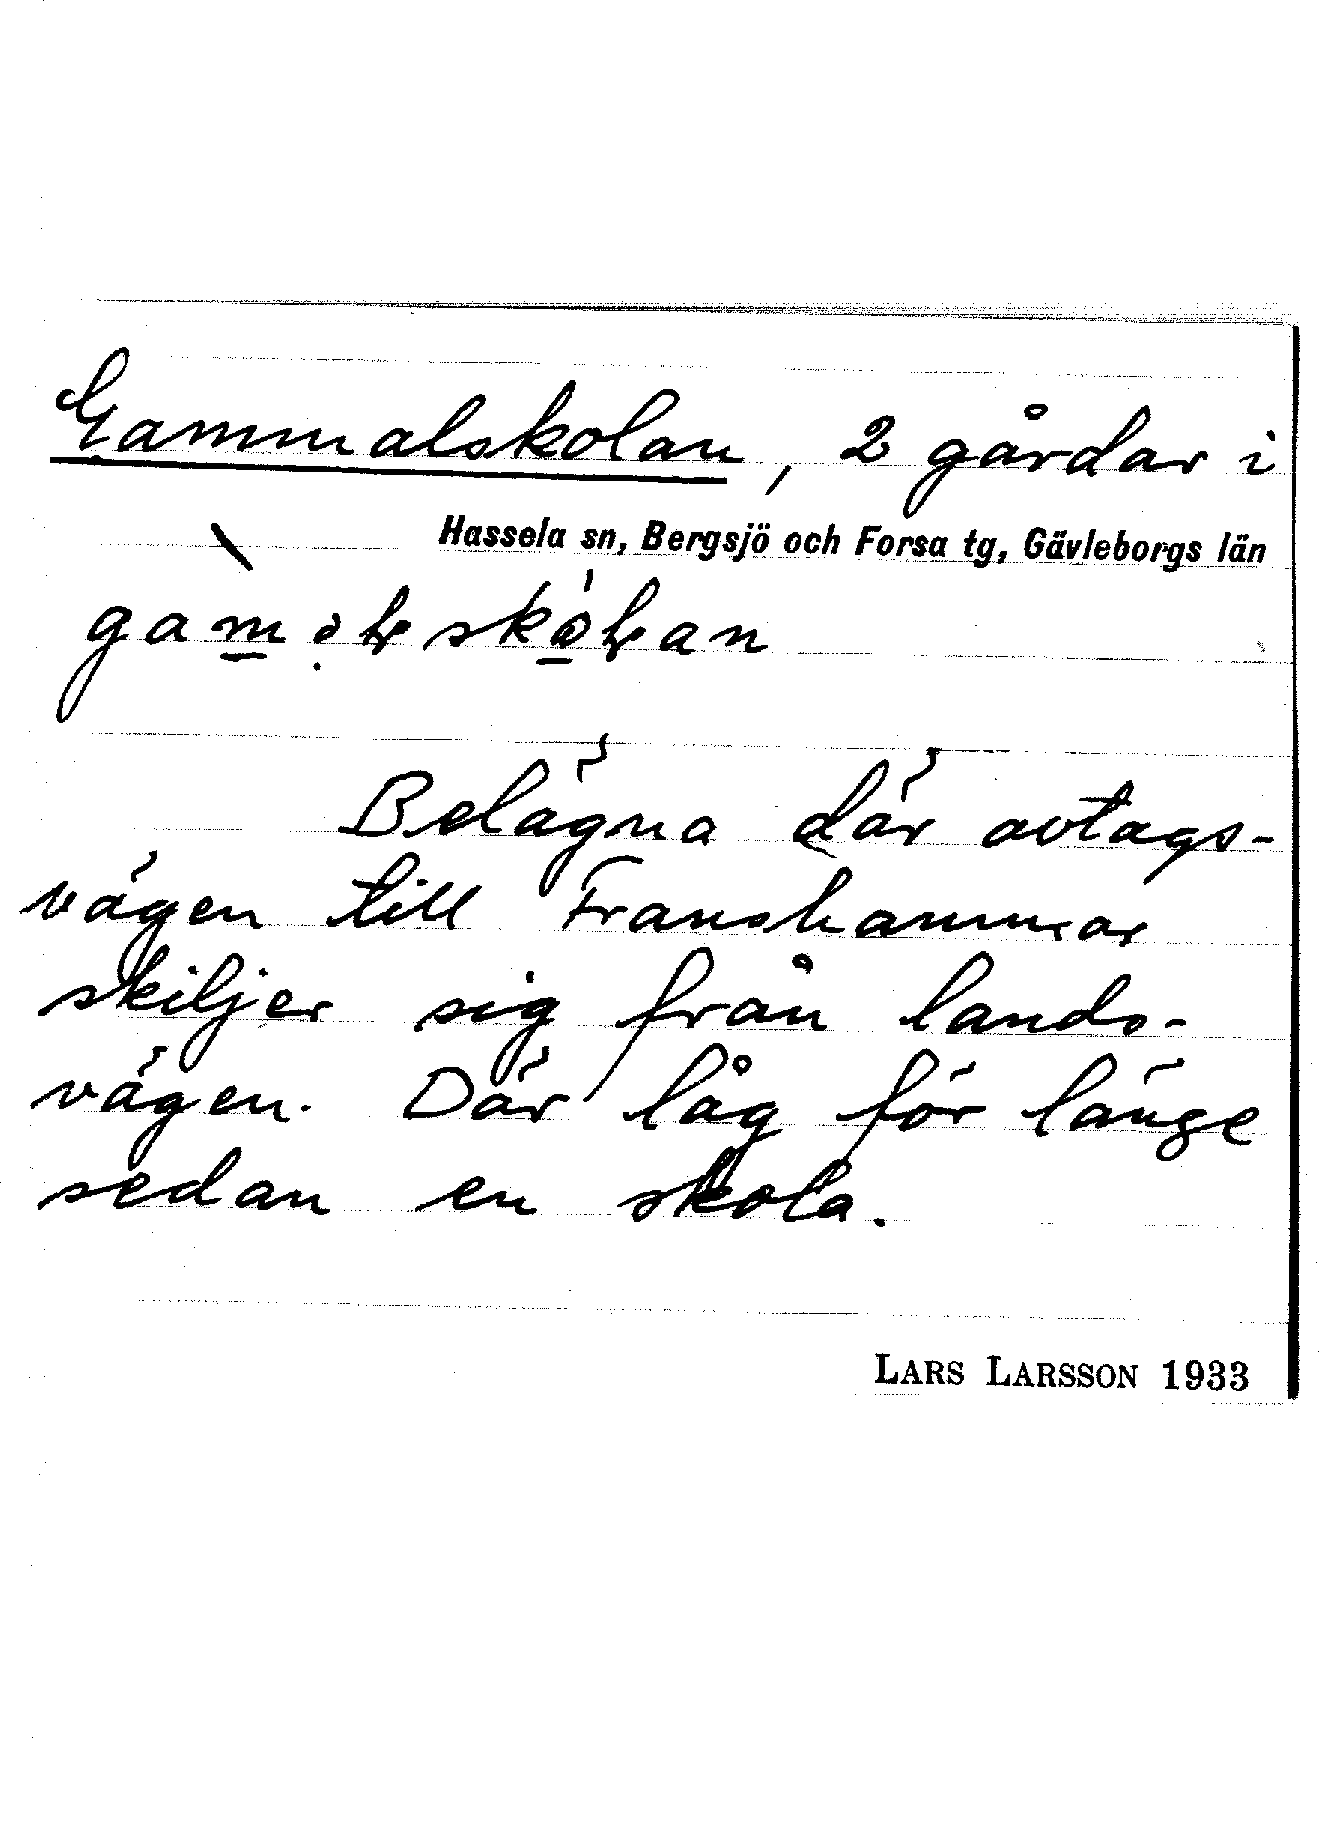 Gammalskolan, 2 gårdar i
Hassela sn, Bergsjö och Forsa tg, Gävleborgs län
Belägna där avtags-
vägen till Franshammar
skiljer sig från lands-
vägen. Där låg för länge
sedan en skola.
LARS LARSSON 1933